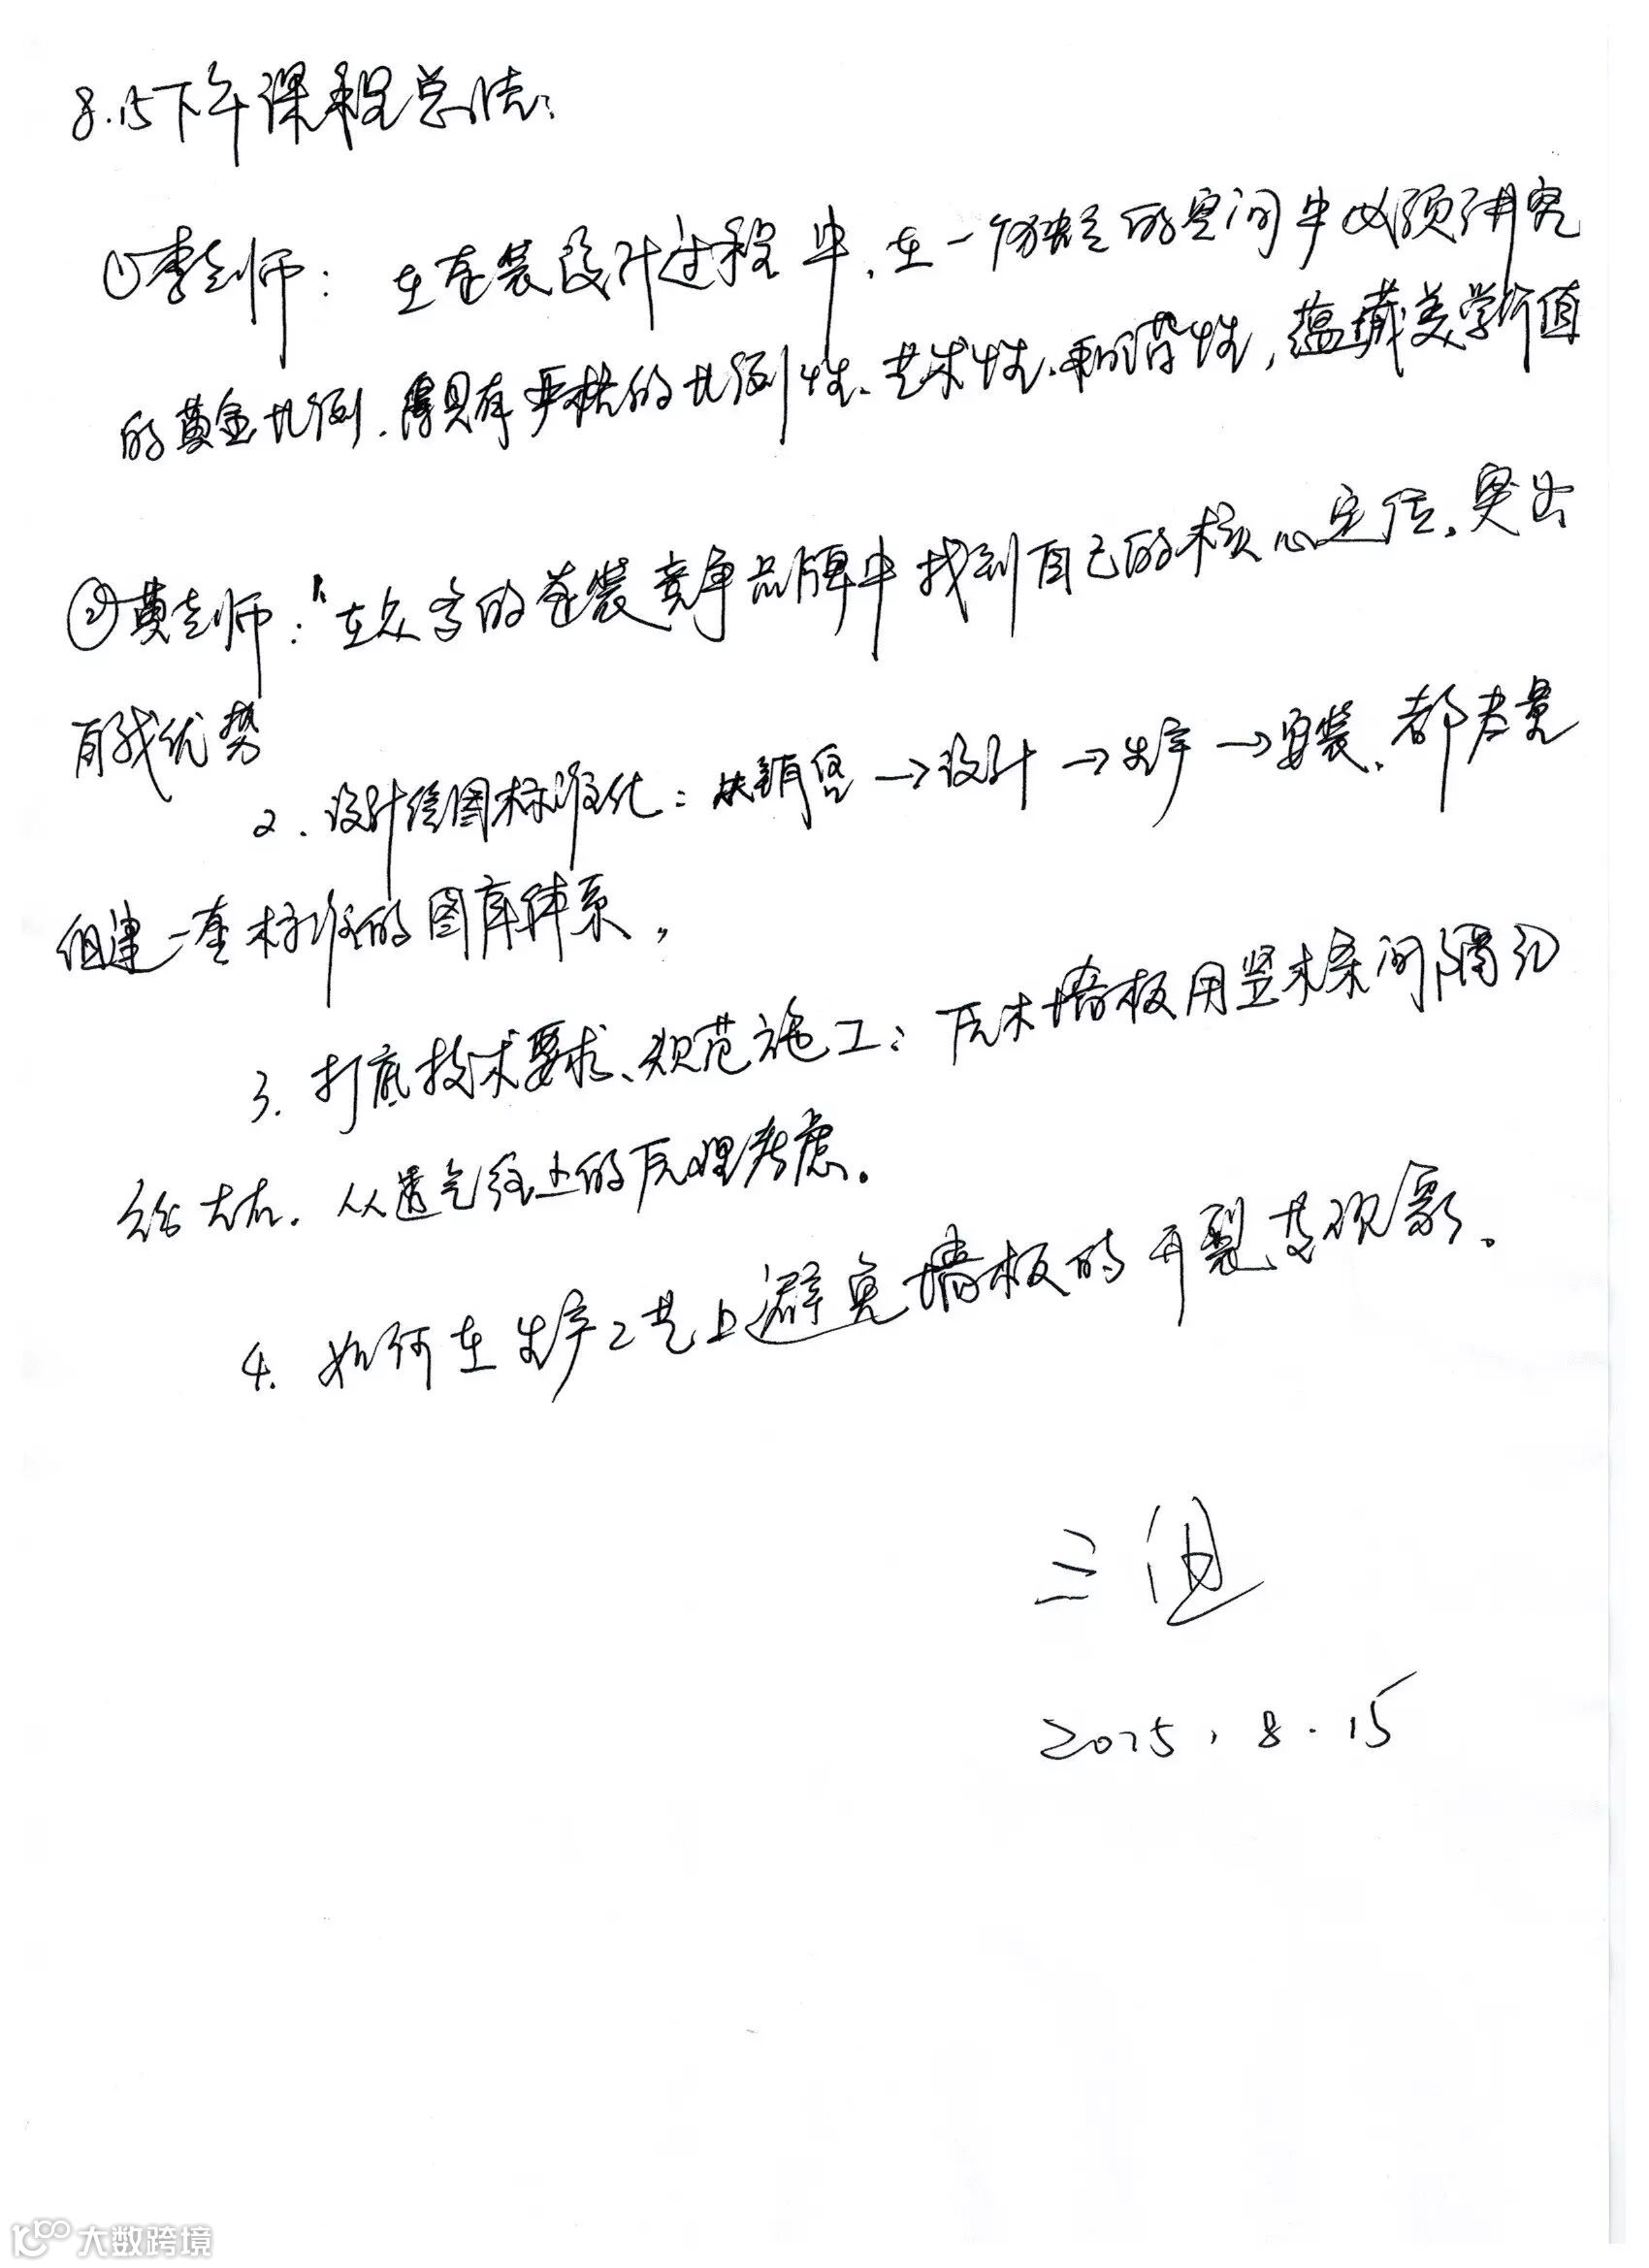 8.15下午课程总结:
①李老师: 在整装设计过程中,在一个独立的空间中必须讲究
的黄金比例,得具有严格的比例性、艺术性、和谐性,蕴藏美学价值
②黄老师:1、在众多的整装竞争品牌中找到自己的核心定位,突出
自我优势
2.设计绘图标准化:从销售→设计→生产→安装,都尽量
组建一套标准的图库体系。
3.打底技术要求、规范施工:原木墙板用竖木条间隔
左右,从透气的原理考虑。
4.如何在生产工艺上避免墙板的开裂及现象。
三组
2025.8.15
大数跨境